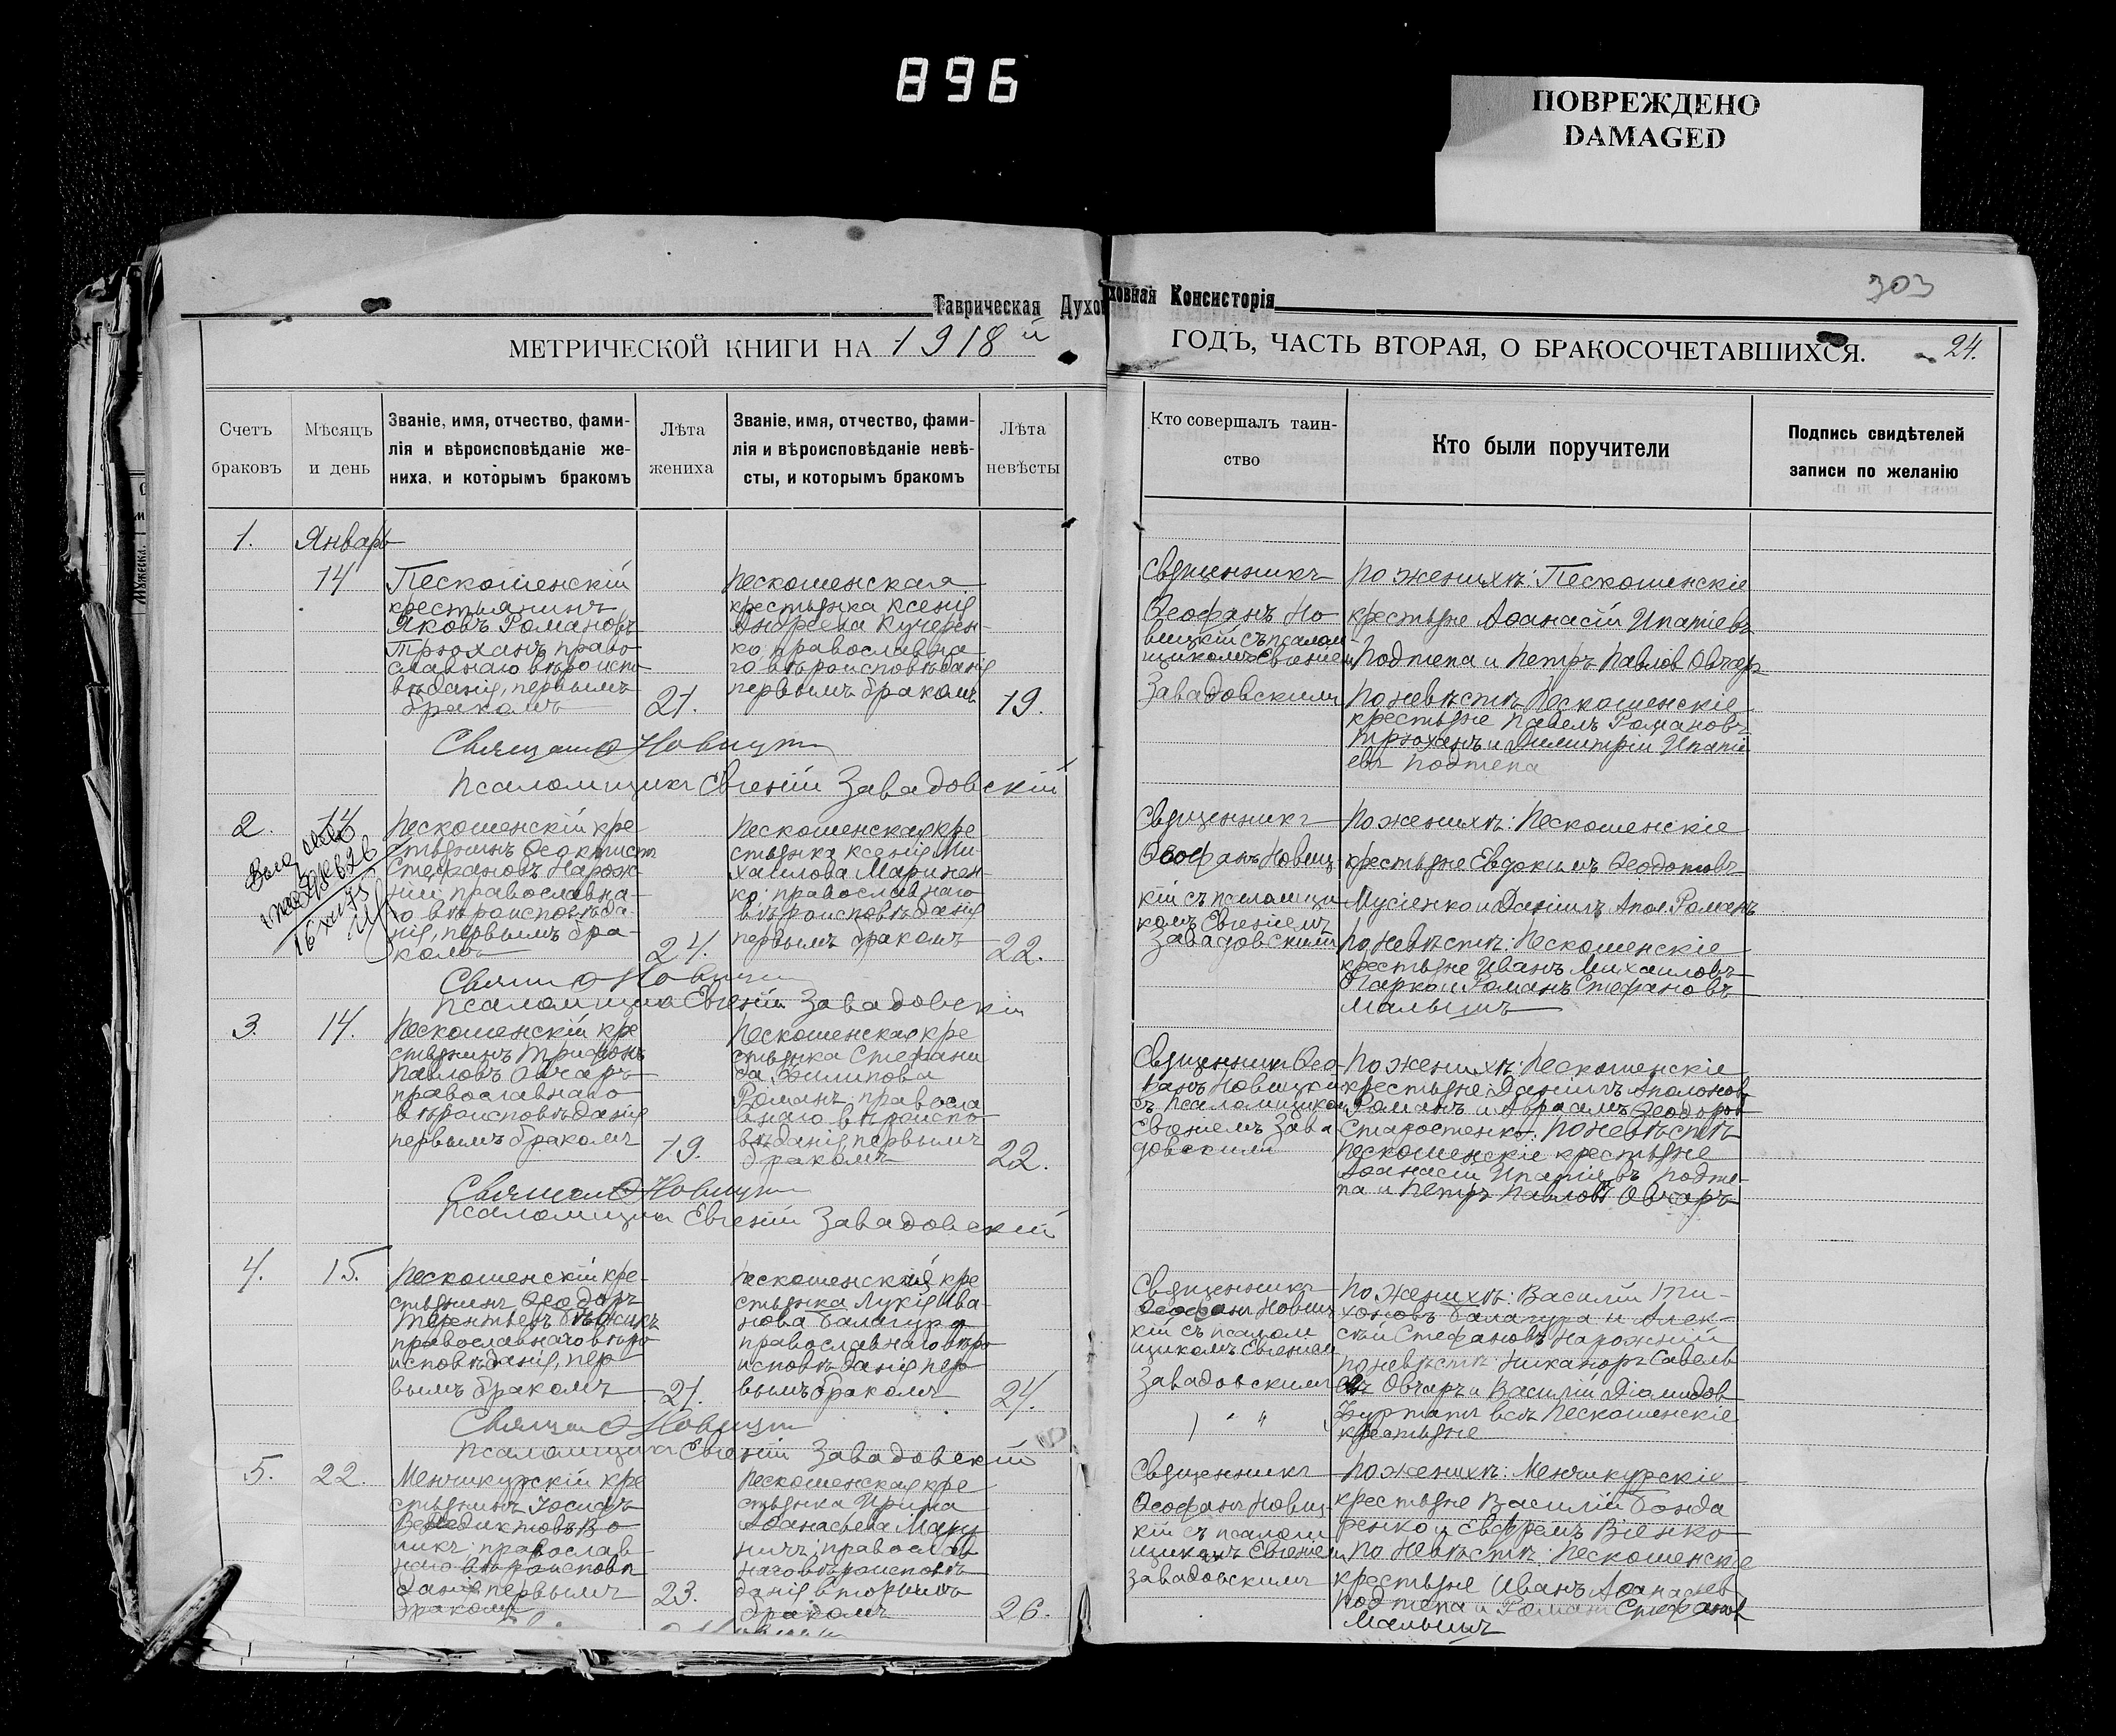 896
ПОВРЕЖДЕНО
DAMAGED
303
Таврическая Духовная Консисторія
МЕТРИЧЕСКОЙ КНИГИ НА 1918й
ГОДЪ, ЧАСТЬ ВТОРАЯ, О БРАКОСОЧЕТАВШИХСЯ.
24.
Счетъ
браковъ
Мѣсяцъ
и день
Званіе, имя, отчество, фами-
лія и вѣроисповѣданіе же-
ниха, и которымъ бракомъ
Лѣта
жениха
Званіе, имя, отчество, фами-
лія и вѣроисповѣданіе невѣ-
сты, и которымъ бракомъ
Лѣта
невѣсты
Кто совершалъ таин-
ство
Кто были поручители
Подпись свидѣтелей
записи по желанію
1.
Январь
14
Пескошенскій
крестьянинъ
Яковъ Романовъ
Трюханъ право
славнаго вѣроиспо
вѣданія, первымъ
бракомъ
21.
Пескошенская
крестьянка Ксенія
Андреева Кучерен-
ко, православна
го вѣроисповѣданія
первымъ бракомъ
19.
Священникъ
Ѳеофанъ Но
вицкій съ псалом
щикомъ Евгеніем
Завадовскимъ
По женихѣ: Пескошенскіе
крестьяне Аѳанасій Ипатіевъ
Подтепа и Петръ Павлов Овчаръ
По невѣстѣ Пескошенскіе
крестьяне Павелъ Романовъ
Трюханъ и Димитрій Ипаті
евъ Подтепа
Псаломщикъ Евгеній Завадовскій
2.
14
16 XII 75
Пескошенскій кре
стьянинъ Ѳеоктистъ
Стефановъ Нарож-
ній православна-
го вѣроисповѣда-
нія, первымъ бра-
комъ
24.
Пескошенская кре
стьянка Ксенія Ми-
хаилова Маринен-
ко православнаго
вѣроисповѣданія
первымъ бракомъ
22.
Священникъ
Ѳеофанъ Новиц-
кій съ псаломщи
комъ Евгеніемъ
Завадовскимъ
По женихѣ: Пескошенскіе
крестьяне Евдокимъ Ѳеодотовъ
Мусіенко и Даніилъ Апол. Романъ
По невѣстѣ: Пескошенскіе
крестьяне Иванъ Михаиловъ
Огарко и Романъ Стефановъ
Малышъ
Псаломщикъ Евгеній Завадовскій
3.
14.
Пескошенскій кре
стьянинъ Трифонъ
Павловъ Овчаръ
православнаго
вѣроисповѣданія
первымъ бракомъ
19.
Пескошенская кре
стьянка Стефани
да Филипова
Романъ, правосла
внаго вѣроиспо
вѣданія первымъ
бракомъ
22.
Священникъ Ѳео-
фанъ Новицкій
съ псаломщиком
Евгеніемъ Зава
довскимъ
По женихѣ: Пескошенскіе
крестьяне: Даніилъ Аполоновъ
Романъ и Авраамъ Ѳеодоров
Старостенко; по невѣстѣ
Пескошенскіе крестьяне
Аѳанасій Ипатіевъ Подте-
па и Петръ Павловъ Овчаръ
Псаломщикъ Евгеній Завадовскій
4.
15.
Пескошенскій кре-
стьянинъ Ѳеодоръ
Терентьевъ
православнаго вѣро
исповѣданія, пер
вымъ бракомъ
21.
Пескошенская кре
стьянка Лукія Ива-
нова Балагура
православнаго вѣро
исповѣданія пер
вымъ бракомъ
24.
Священникъ
Ѳеофанъ Новиц
кій съ псалом
щикомъ Евгеніем
Завадовскимъ
По женихѣ: Василій Ти-
хоновъ Балагура и Алек-
сѣй Стефановъ Нарожній
по невѣстѣ Никаноръ Савель
евъ Овчаръ и Василій Діамидов
всѣ Пескошенскіе
крестьяне
Псаломщикъ Евгеній Завадовскій
5.
22.
Менчикурскій кре
стьянинъ Іосифъ
Венедиктовъ Во
православ
наго вѣроисповѣ
данія первымъ
бракомъ
23.
Пескошенская кре
стьянка Ирина
Аѳанасьева
православ
наго вѣроисповѣ
данія вторымъ
бракомъ
26.
Священникъ
Ѳеофанъ Новиц-
кій съ псалом
щикомъ Евгеніем
Завадовскимъ
По женихѣ: Менчикурскіе
крестьяне Василій Бонда
ренко и Ефремъ Віенко
По невѣстѣ: Пескошенскіе
крестьяне Иванъ Аѳанасіев
Подтепа и Романъ Стефанов
Малышъ